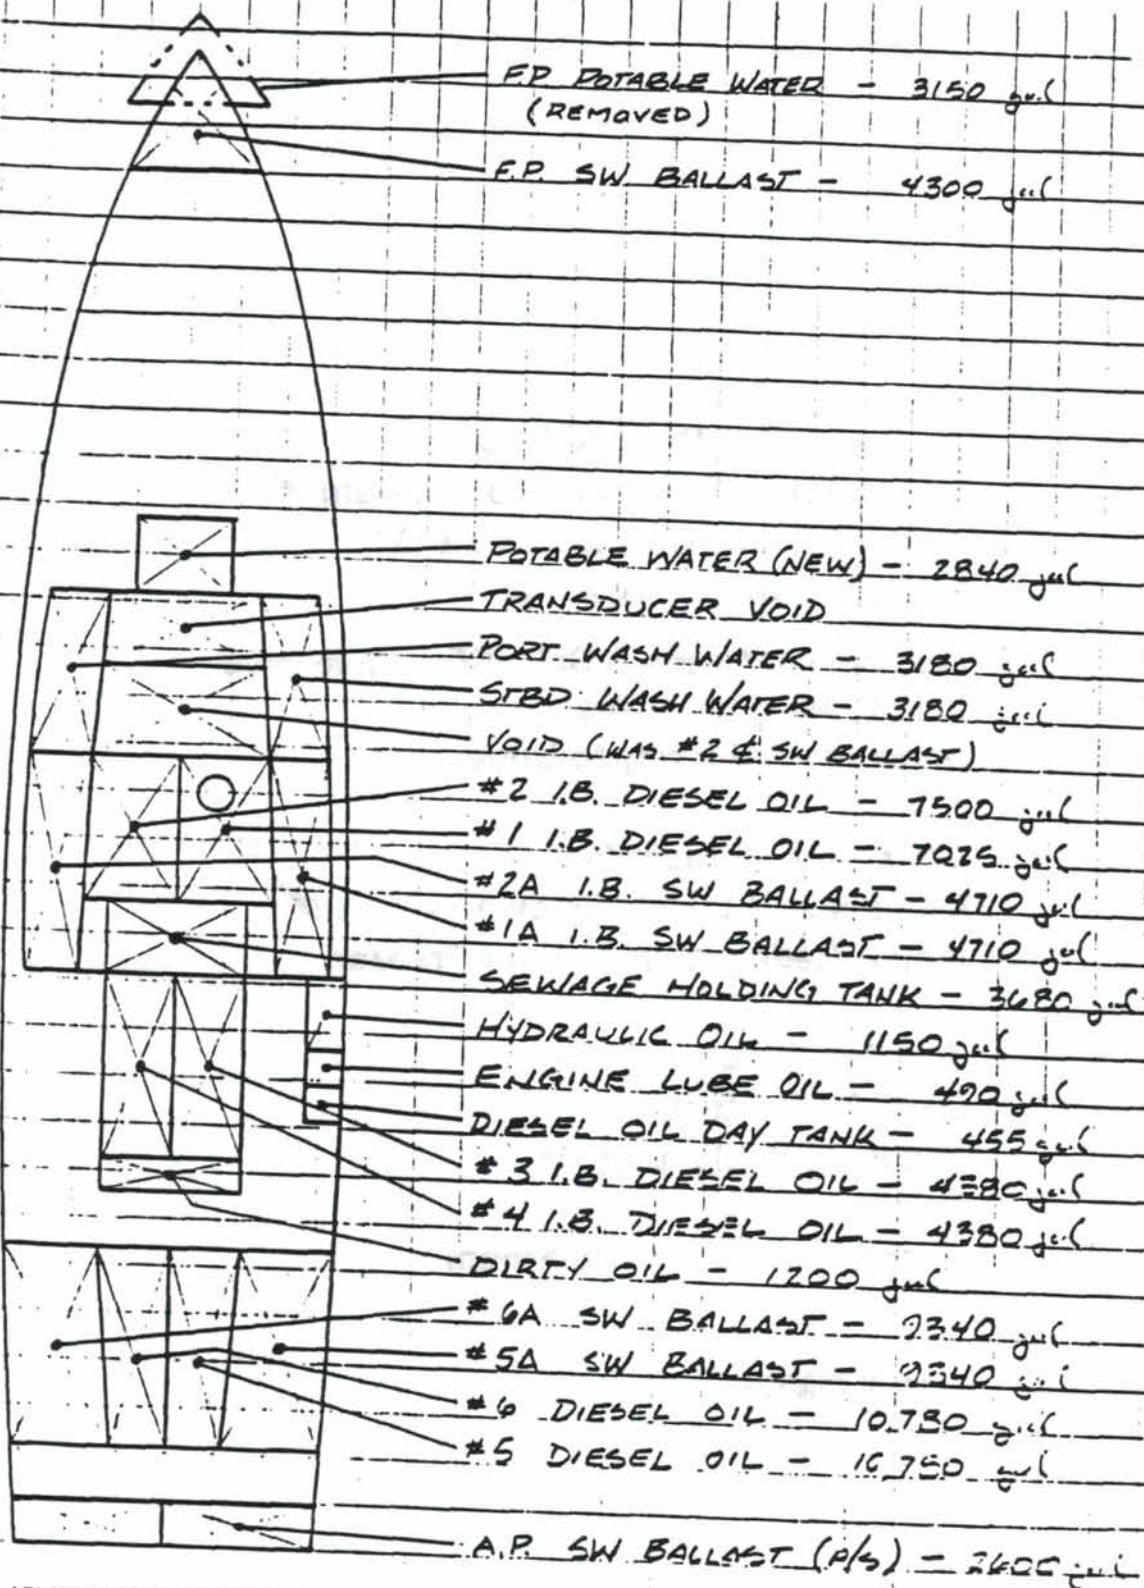 F.P. POTABLE WATER - 3150 gal
(REMOVED)
F.P. SW BALLAST - 4300 gal
POTABLE WATER (NEW) - 2840 gal
TRANSDUCER VOID
PORT WASH WATER - 3180 gal
STBD WASH WATER - 3180 gal
VOID (WAS #2 ℄ SW BALLAST)
#2 I.B. DIESEL OIL - 7500 gal
#1 I.B. DIESEL OIL - 7025 gal
#2A I.B. SW BALLAST - 4710 gal
#1A I.B. SW BALLAST - 4710 gal
SEWAGE HOLDING TANK - 3680 gal
HYDRAULIC OIL - 1150 gal
ENGINE LUBE OIL - 490 gal
DIESEL OIL DAY TANK - 455 gal
#3 I.B. DIESEL OIL - 4380 gal
#4 I.B. DIESEL OIL - 4380 gal
DIRTY OIL - 1200 gal
#6A SW BALLAST - gal
#5A SW BALLAST - gal
#6 DIESEL OIL - 10,780 gal
#5 DIESEL OIL - gal
A.P. SW BALLAST (P/S) - gal